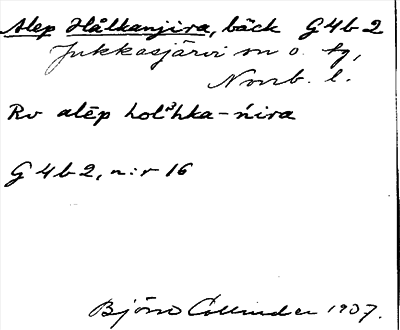 Alep Hålkanjira, bäck G4b2
Jukkasjärvi sn o. tg,
Norrb. l.
Rv alēp hol³hka-ńira
G4b2, n:r 16
Björn Collinder 1937.